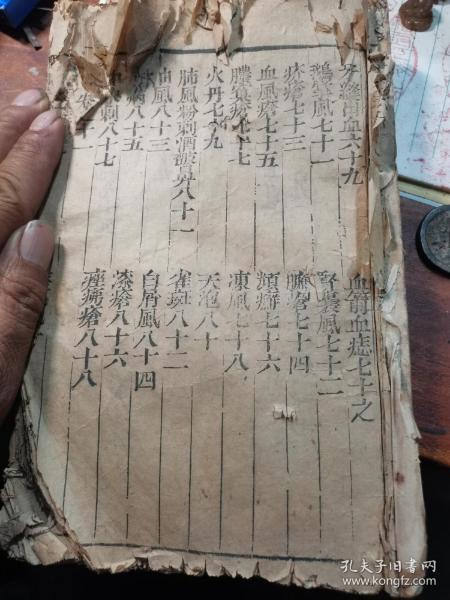 牙縫出血六十九
血箭血痣七十之
鵝掌風七十一
腎囊風七十二
疥瘡七十三
臁瘡七十四
血風瘡七十五
頑癬七十六
膿窠瘡七十七
凍風七十八
火丹七十九
天泡八十
肺風粉刺酒鼻八十一
雀斑八十二
油風八十三
白屑風八十四
八十五
漆瘡八十六
刺八十七
痤痱瘡八十八
十一
孔夫子旧书网
www.kongfz.com